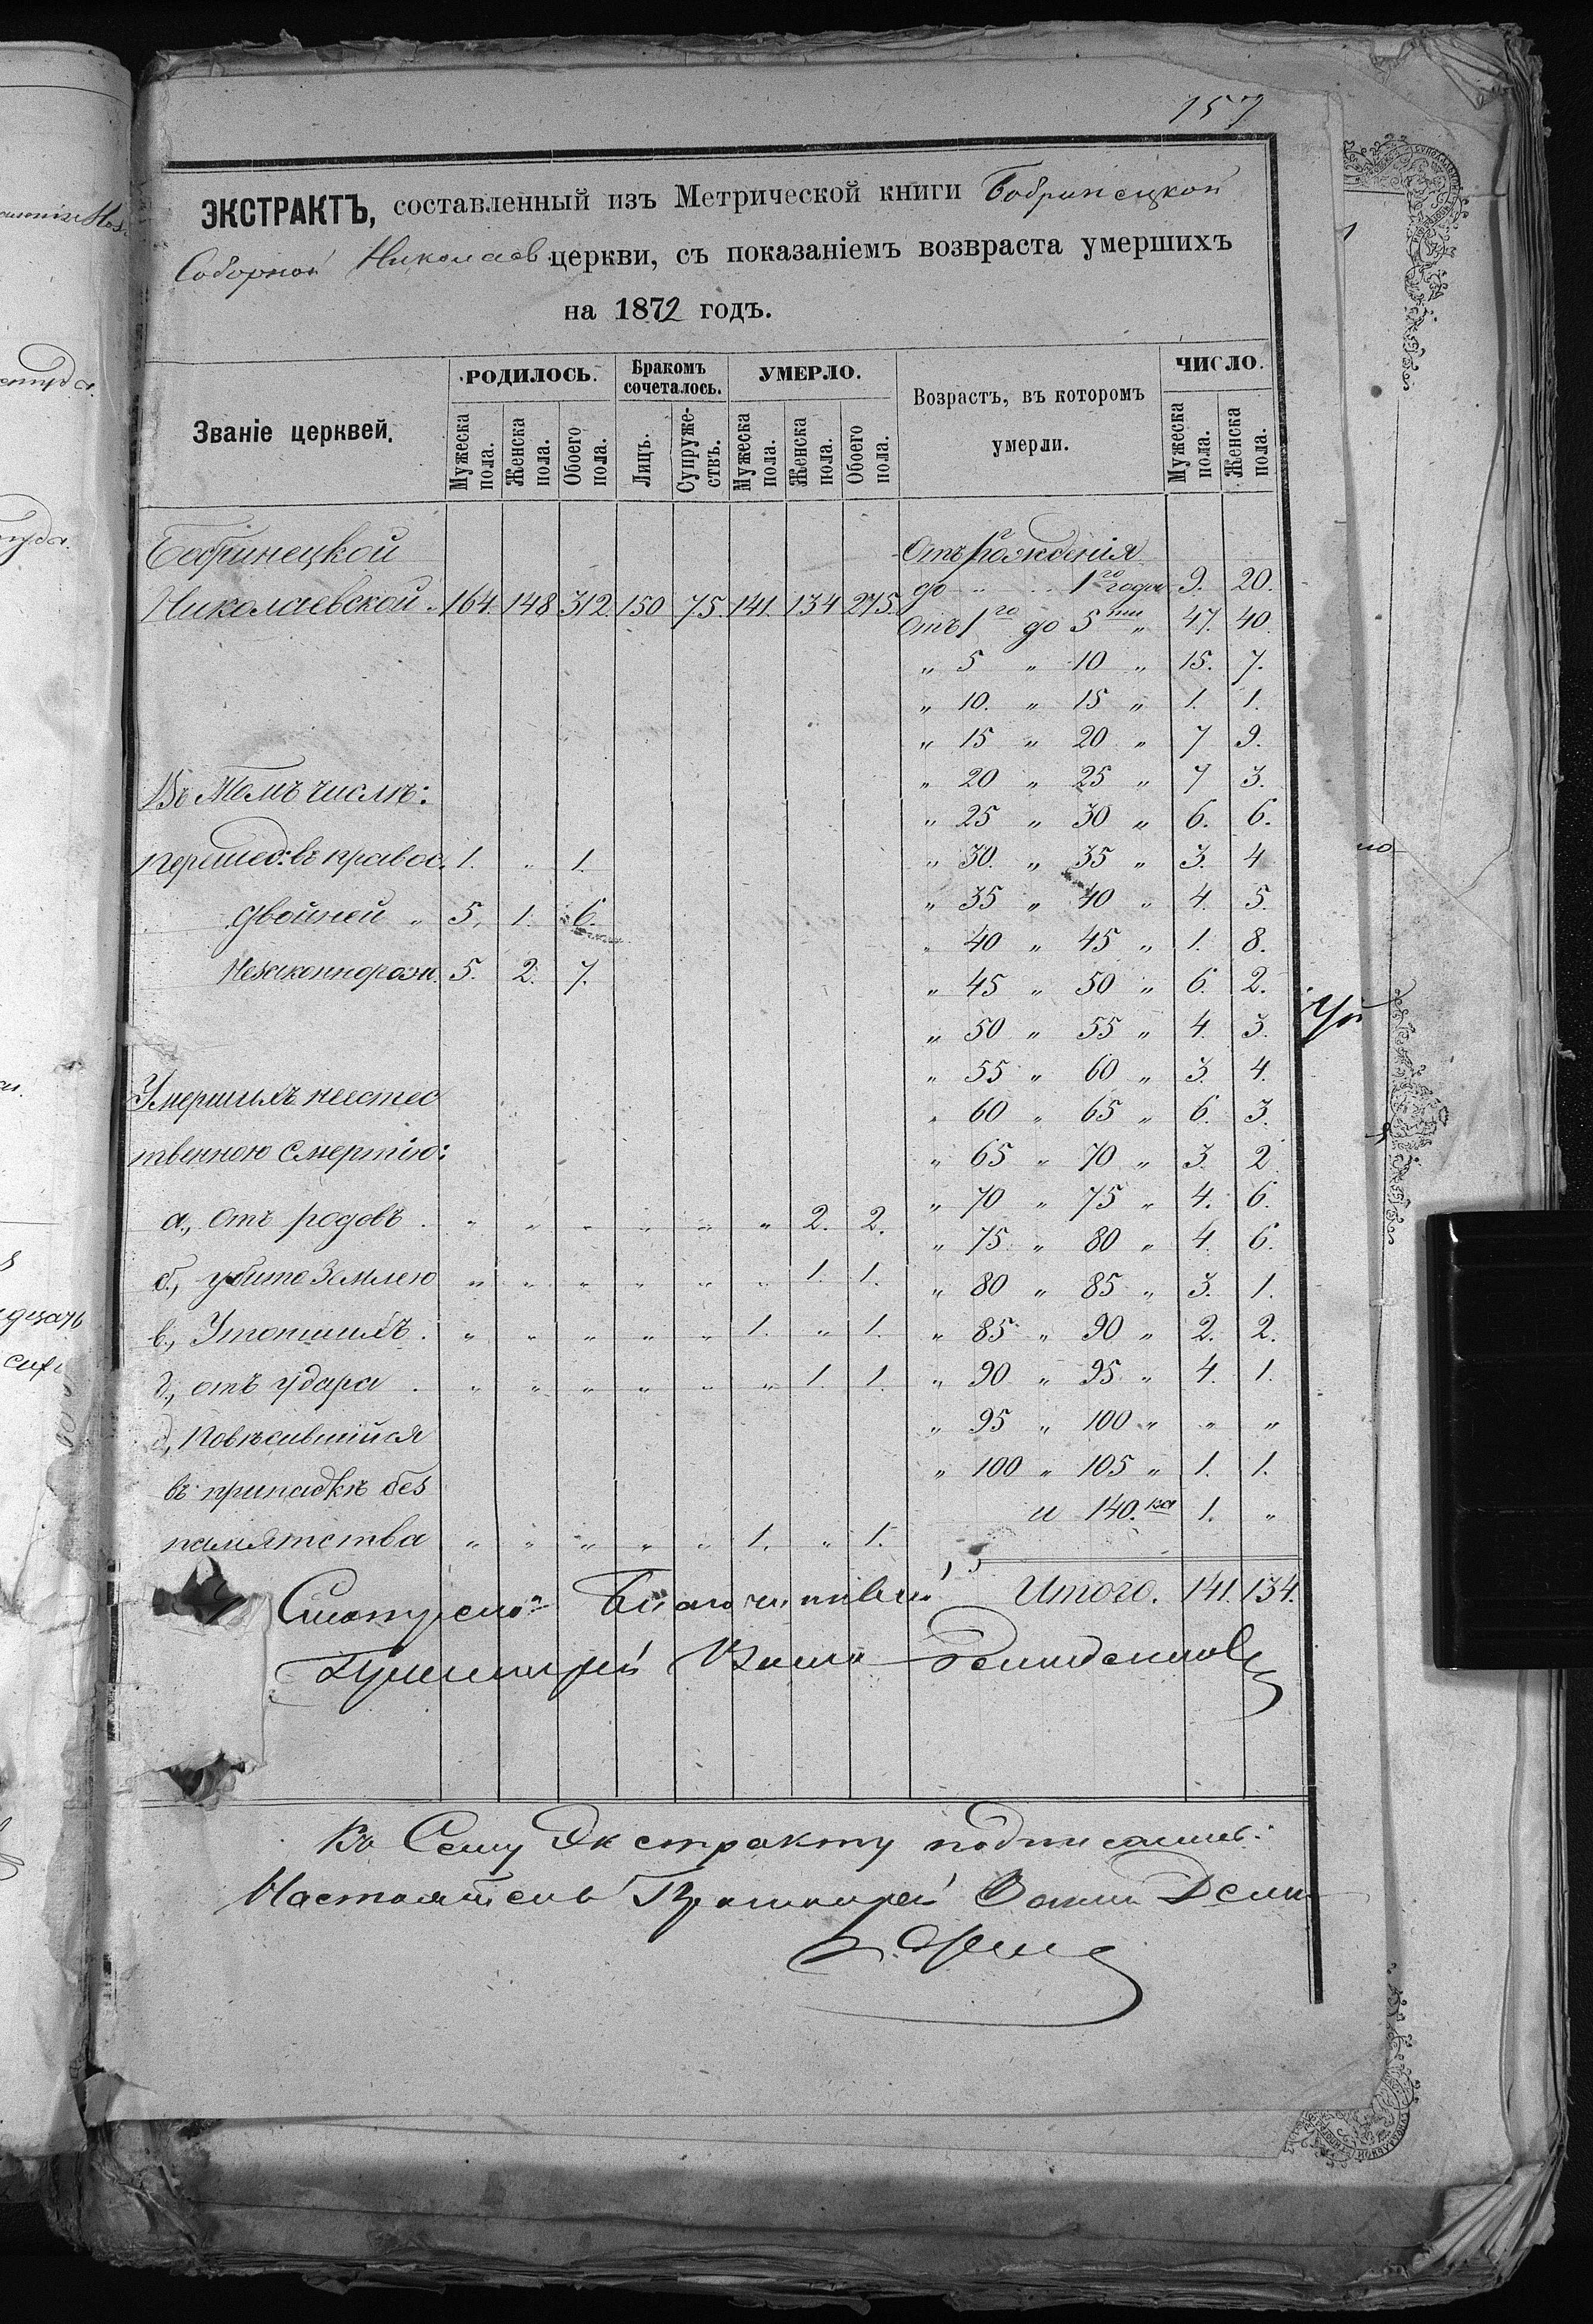 157
ЭКСТРАКТЪ, составленный изъ Метрической книги Бобринецкой
Соборной Николаев. церкви, съ показаніемъ возвраста умершихъ
на 1872 годъ.
Званіе церквей. РОДИЛОСЬ. Бракомъ сочеталось. УМЕРЛО. Возрастъ, въ которомъ умерли. ЧИСЛО.
Мужеска пола. Женска пола. Обоего пола. Лицъ. Супружествъ. Мужеска пола. Женска пола. Обоего пола. Мужеска пола. Женска пола.
Бобринецкой
Николаевской. 164. 148. 312. 150 75. 141. 134 275.
Въ томъ числѣ:
Перешед: въ правос. 1. „ 1.
двойней „ 5. 1. 6.
Незаконнорож. 5. 2. 7.
Умершихъ неестес
твенною смертію:
а., отъ родовъ . „ „ „ „ „ „ 2. 2.
б., убито землею „ „ „ „ „ „ 1. 1.
в., Утопшихъ . „ „ „ „ „ 1. „ 1.
г., отъ удара . „ „ „ „ „ „ 1. 1.
д., Повѣсившійся
въ припадкѣ без
памятства „ „ „ „ „ 1. „ 1.
Отъ рожденія
до 1го года 9. 20.
Отъ 1го до 5ти „ 47. 40.
„ 5 „ 10 „ 15. 7.
„ 10. „ 15 „ 1. 1.
„ 15 „ 20 „ 7 9.
„ 20 „ 25 „ 7 3.
„ 25 „ 30 „ 6. 6.
„ 30. „ 35 „ 3. 4
„ 35 „ 40 „ 4. 5
„ 40 „ 45 „ 1. 8.
„ 45 „ 50 „ 6. 2.
„ 50 „ 55 „ 4. 3.
„ 55 „ 60 „ 3. 4.
„ 60 „ 65 „ 6. 3.
„ 65 „ 70 „ 3. 2
„ 70 „ 75 „ 4. 6.
„ 75 „ 80 „ 4. 6.
„ 80 „ 85 „ 3. 1.
„ 85 „ 90 „ 2. 2.
„ 90 „ 95 „ 4. 1.
„ 95 „ 100 „ „ „
„ 100 „ 105 „ 1. 1.
и 140. 1. „
Итого. 141. 134.
Къ сему Экстракту подписались:
Настоятель